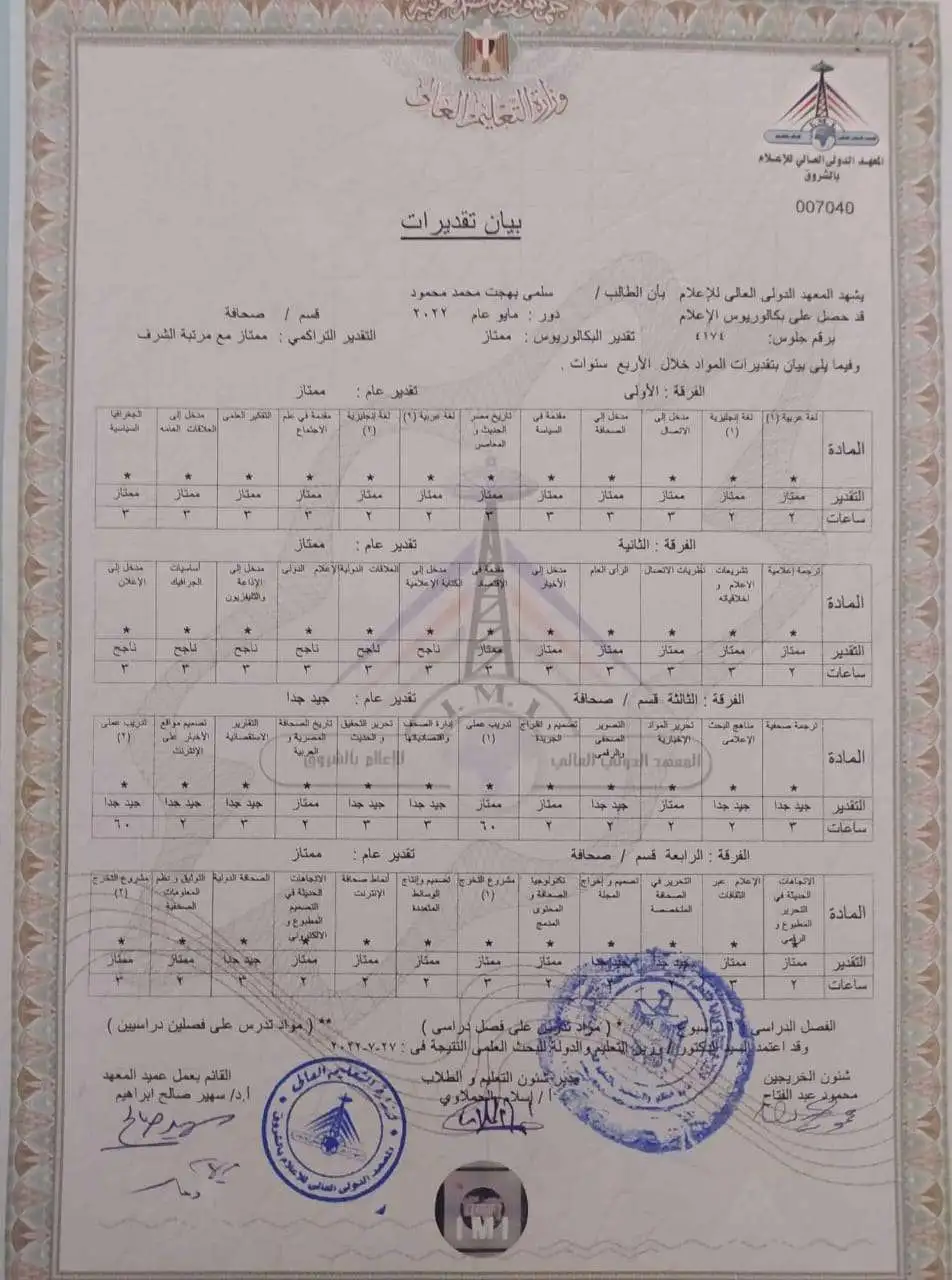 جمهورية مصر العربية
وزارة التعليم العالى
I.M.I
المعهد الدولى العالي للإعلام
بالشروق
007040
بيان تقديرات
يشهد المعهد الدولى العالى للإعلام بأن الطالب / سلمى بهجت محمد محمود
قد حصل على بكالوريوس الإعلام دور : مايو عام ٢٠٢٢ قسم / صحافة
برقم جلوس: ٤١٧٤ تقدير البكالوريوس : ممتاز التقدير التراكمي : ممتاز مع مرتبة الشرف
وفيما يلى بيان بتقديرات المواد خلال الأربع سنوات .
الفرقة : الأولى تقدير عام : ممتاز
المادة لغة عربية (١) لغة إنجليزية (١) مدخل إلى الاتصال مدخل إلى الصحافة مقدمة فى السياسة تاريخ مصر الحديث و المعاصر لغة عربية (٢) لغة إنجليزية (٢) مقدمة في علم الاجتماع التفكير العلمى مدخل إلى العلاقات العامه الجغرافيا السياسية
* * * * * * * * * * * *
التقدير ممتاز ممتاز ممتاز ممتاز ممتاز ممتاز ممتاز ممتاز ممتاز ممتاز ممتاز ممتاز
ساعات ٢ ٢ ٣ ٣ ٣ ٣ ٢ ٢ ٣ ٣ ٣ ٣
الفرقة : الثانية تقدير عام : ممتاز
المادة ترجمة إعلامية تشريعات الاعلام و اخلاقياته نظريات الاتصال الرأى العام مدخل إلى الأخبار مقدمة فى الإقتصاد مدخل إلى الكتابة الإعلامية العلاقات الدولية الإعلام الدولى مدخل إلى الإذاعة والتليفزيون أساسيات الجرافيك مدخل إلى الإعلان
* * * * * * * * * * * *
التقدير ممتاز ممتاز ممتاز ممتاز ممتاز ممتاز ناجح ناجح ناجح ناجح ناجح ناجح
ساعات ٢ ٣ ٣ ٣ ٣ ٣ ٣ ٣ ٣ ٣ ٣ ٣
الفرقة : الثالثة قسم / صحافة تقدير عام : جيد جدا
المادة ترجمة صحفية مناهج البحث الإعلامي تحرير المواد الإخبارية التصوير الصحفى والرقمى تصميم و إخراج الجريدة تدريب عملى (١) إدارة الصحف واقتصادياتها تحرير التحقيق و الحديث تاريخ الصحافة المصرية و العربية التقارير الاستقصائية تصميم مواقع الأخبار على الإنترنت تدريب عملى (٢)
* * * * * * * * * * * *
التقدير جيد جدا جيد جدا ممتاز جيد جدا ممتاز ممتاز جيد جدا جيد جدا ممتاز جيد جدا جيد جدا جيد جدا
ساعات ٣ ٢ ٢ ٢ ٢ ٦٠ ٣ ٣ ٢ ٣ ٢ ٦٠
I.M.I
المعهد الدولي العالي للإعلام بالشروق
الفرقة : الرابعة قسم / صحافة تقدير عام : ممتاز
المادة الاتجاهات الحديثة في التحرير المطبوع و الرقمي الإعلام عبر الثقافات التحرير في الصحافة المتخصصة تصميم و إخراج المجلة تكنولوجيا الصحافة و المحتوى المدمج مشروع التخرج (١) تصميم وإنتاج الوسائط المتعددة أنماط صحافة الإنترنت الاتجاهات الحديثة في التصميم المطبوع و الالكتروني الصحافة الدولية التوثيق و نظم المعلومات الصحفية مشروع التخرج (٢)
* * * * * * * * * *
التقدير ممتاز ممتاز جيد جدا ممتاز ممتاز ممتاز ممتاز ممتاز جيد جدا ممتاز ممتاز
ساعات ٢ ٣ ٢ ٢ ٣ ٢ ٢ ٢ ٣ ٢ ٣
الفصل الدراسى أسبوع * ( مواد تدرس على فصل دراسى ) ** ( مواد تدرس على فصلين دراسيين )
وقد اعتمد السيد الدكتور / وزير التعليم والدولة للبحث العلمى النتيجة فى : ٢٧-٧-٢٠٢٢
شئون الخريجين مدير شئون التعليم و الطلاب القائم بعمل عميد المعهد
محمود عبد الفتاح أ / إسلام الحملاوي أ.د/ سهير صالح ابراهيم
وزارة التعليم العالى
المعهد الدولى العالى للإعلام بالشروق
IMI